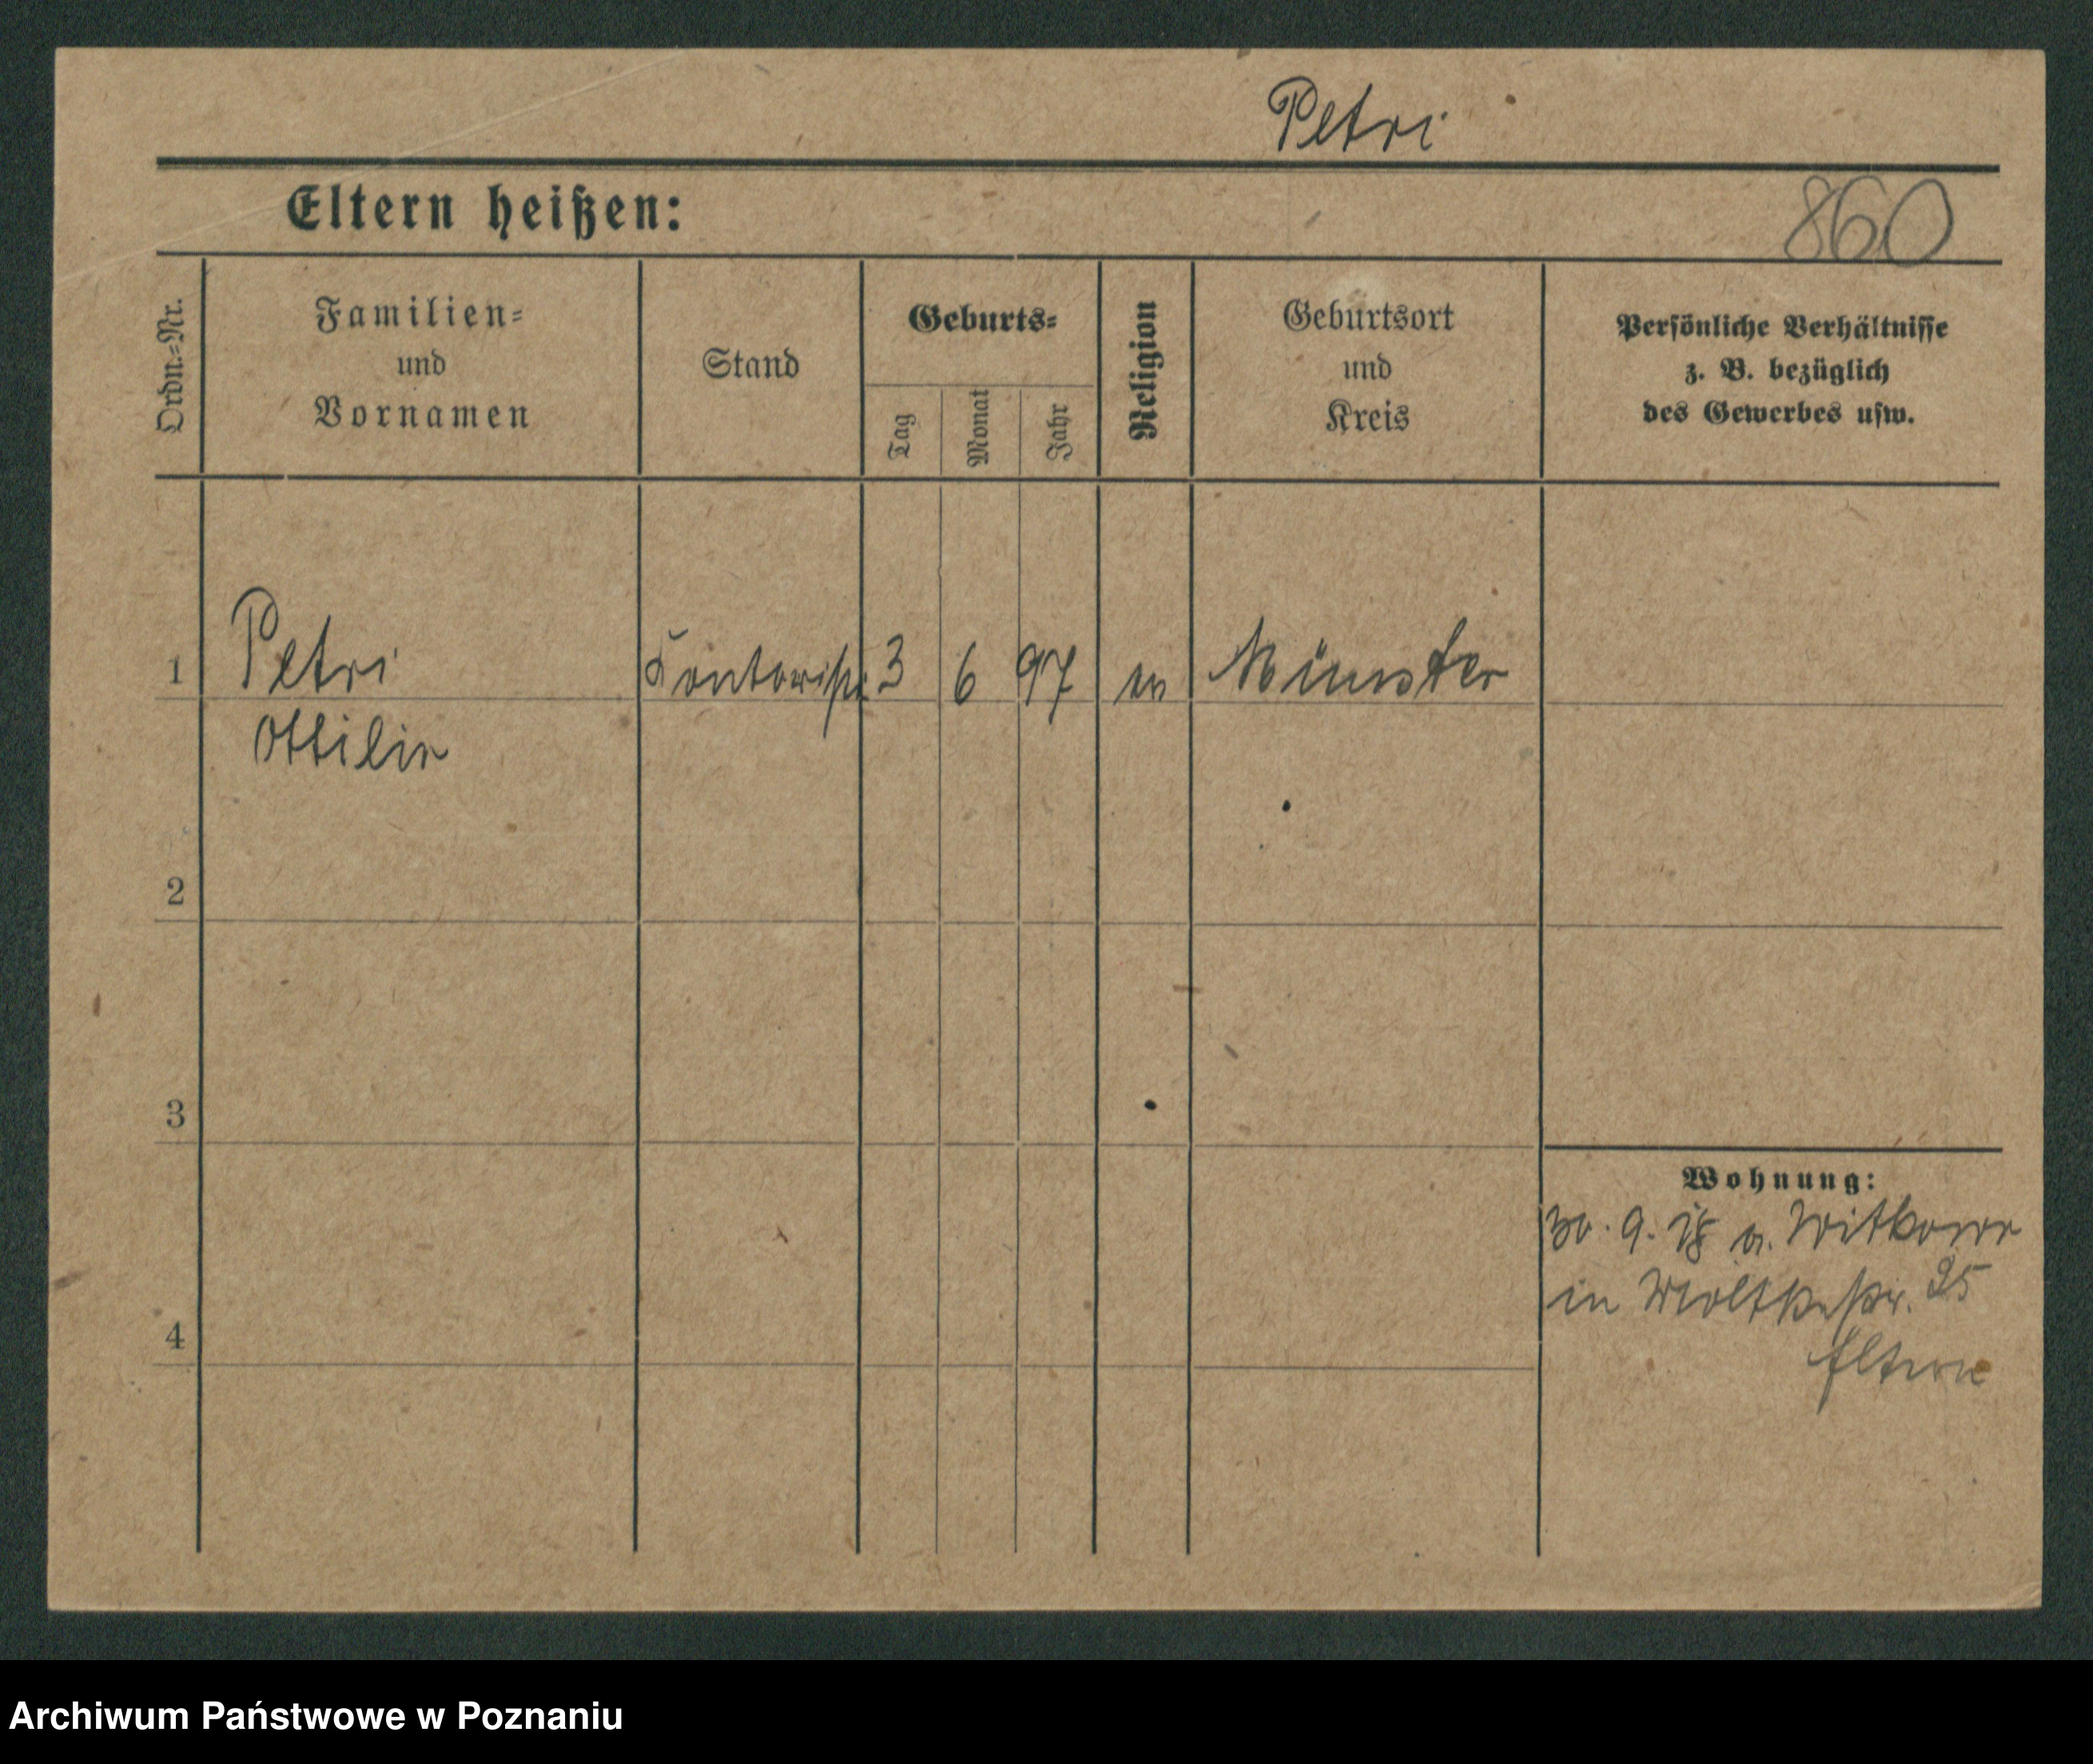 Petri
Eltern heißen:
860
Ordn.-Nr.
Familien-
und
Vornamen
Stand
Geburts-
Tag
Monat
Jahr
Religion
Geburtsort
und
Kreis
Persönliche Verhältnisse
z. B. bezüglich
des Gewerbes usw.
1 Petri Kontorist. 3 6 97 ev Münster
Ottilie
2
3
4
Wohnung:
30. 9. 18 a. Witkowo
in Moltkestr. 25
Eltern
Archiwum Państwowe w Poznaniu